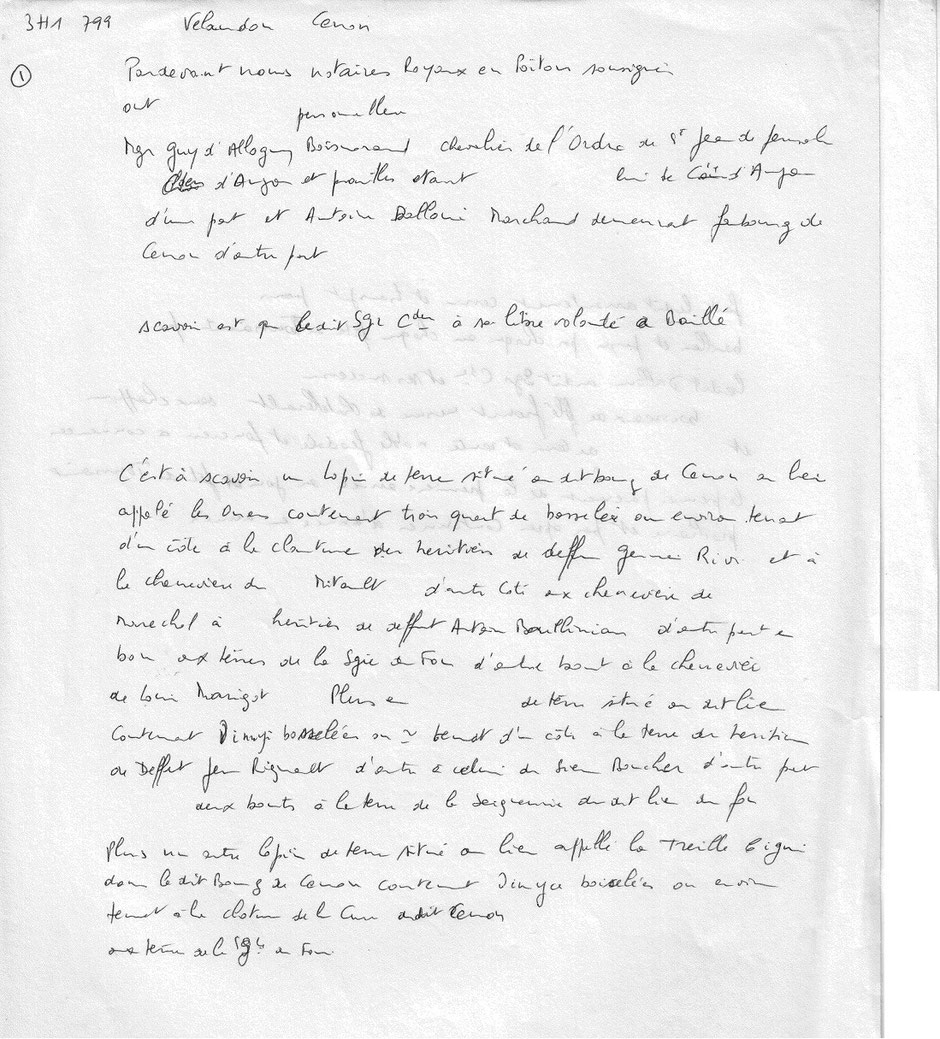 3H1 799 Velaudon Cenon
①
Pardevant nous notaires Royaux en Poitou soussignés
ont personnellem
Mgr Guy d'Allogny Boismorand chevalier de l'Ordre de St Jean de Jerusalem
d'Anjou et étant
d'une part et Antoine Marchand demeurant faubourg de
Cenon d'autre part
scavoir est que ledit Sgr Cdeur à sa libre volonté a Baillé
C'est à scavoir un lopin de terre situé audit bourg de Cenon au lieu
appelé les contenant trois quart de bosselée ou environ tenant
d'un côté à la clouture des heritiers de deffun et à
la cheneviere du Mitault d'autre coté aux cheneviere de
Marechal à heritier de deffunt d'autre part en
bou aux terres de la Sgie de Fou d'autre bout à la cheneviere
de Louis Marigot Plus de terre situé audit lieu
Contenant bosselées ou ~ tenant d'un côté à la terre des heritiers
de Deffunt Jean d'autre à celui du Sieur Boucher d'autre part
aux bouts à la terre de la Seigneurie dudit lieu du fou
Plus un autre lopin de terre situé au lieu appellé la Treille
dans ledit Bourg de Cenon contenant boisselées ou environ
tenant à la cloture de la Cure dudit Cenon
aux terre de la Sgie de Fou